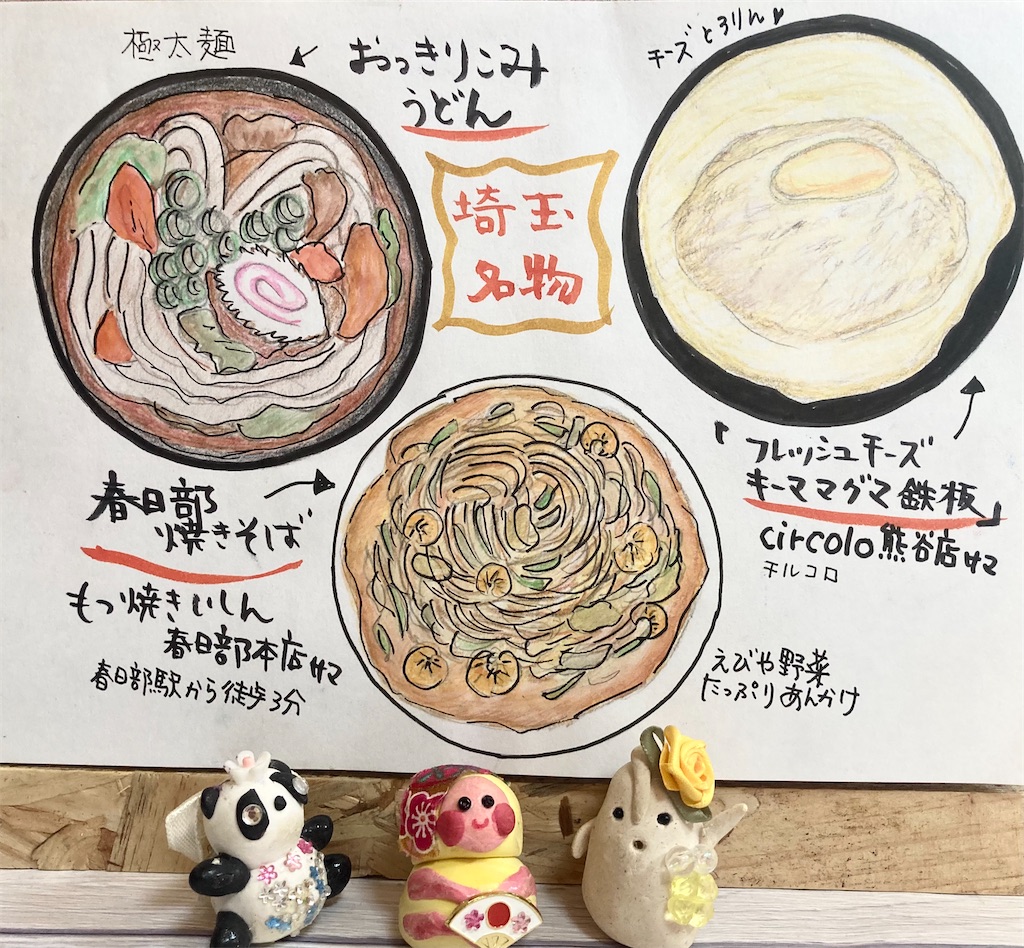 極太麺
おっきりこみ
うどん
チーズとろりん♥
埼玉
名物
「フレッシュチーズ
キーママグマ鉄板」
circolo熊谷店サマ
チルコロ
春日部
焼きそば
もつ焼きいしん
春日部本店サマ
春日部駅から徒歩3分
えびや野菜
たっぷりあんかけ